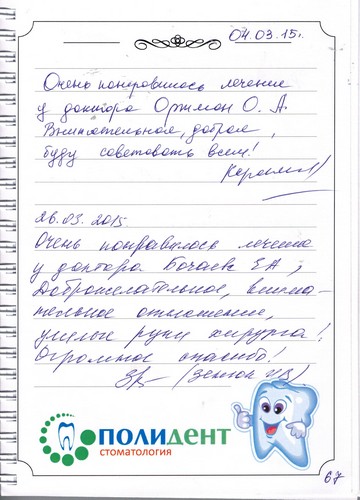 04.03.15г.
Очень понравилось лечение
у доктора Оржман О. А.
Внимательная, добрая,
буду советовать всем!
26.03.2015.
Очень понравилось лечение
у доктора Бочаев
Доброжелательное, внима-
тельное отношение,
умелые руки хирурга!
Огромное спасибо!
ПОЛИДЕНТ
СТОМАТОЛОГИЯ
67